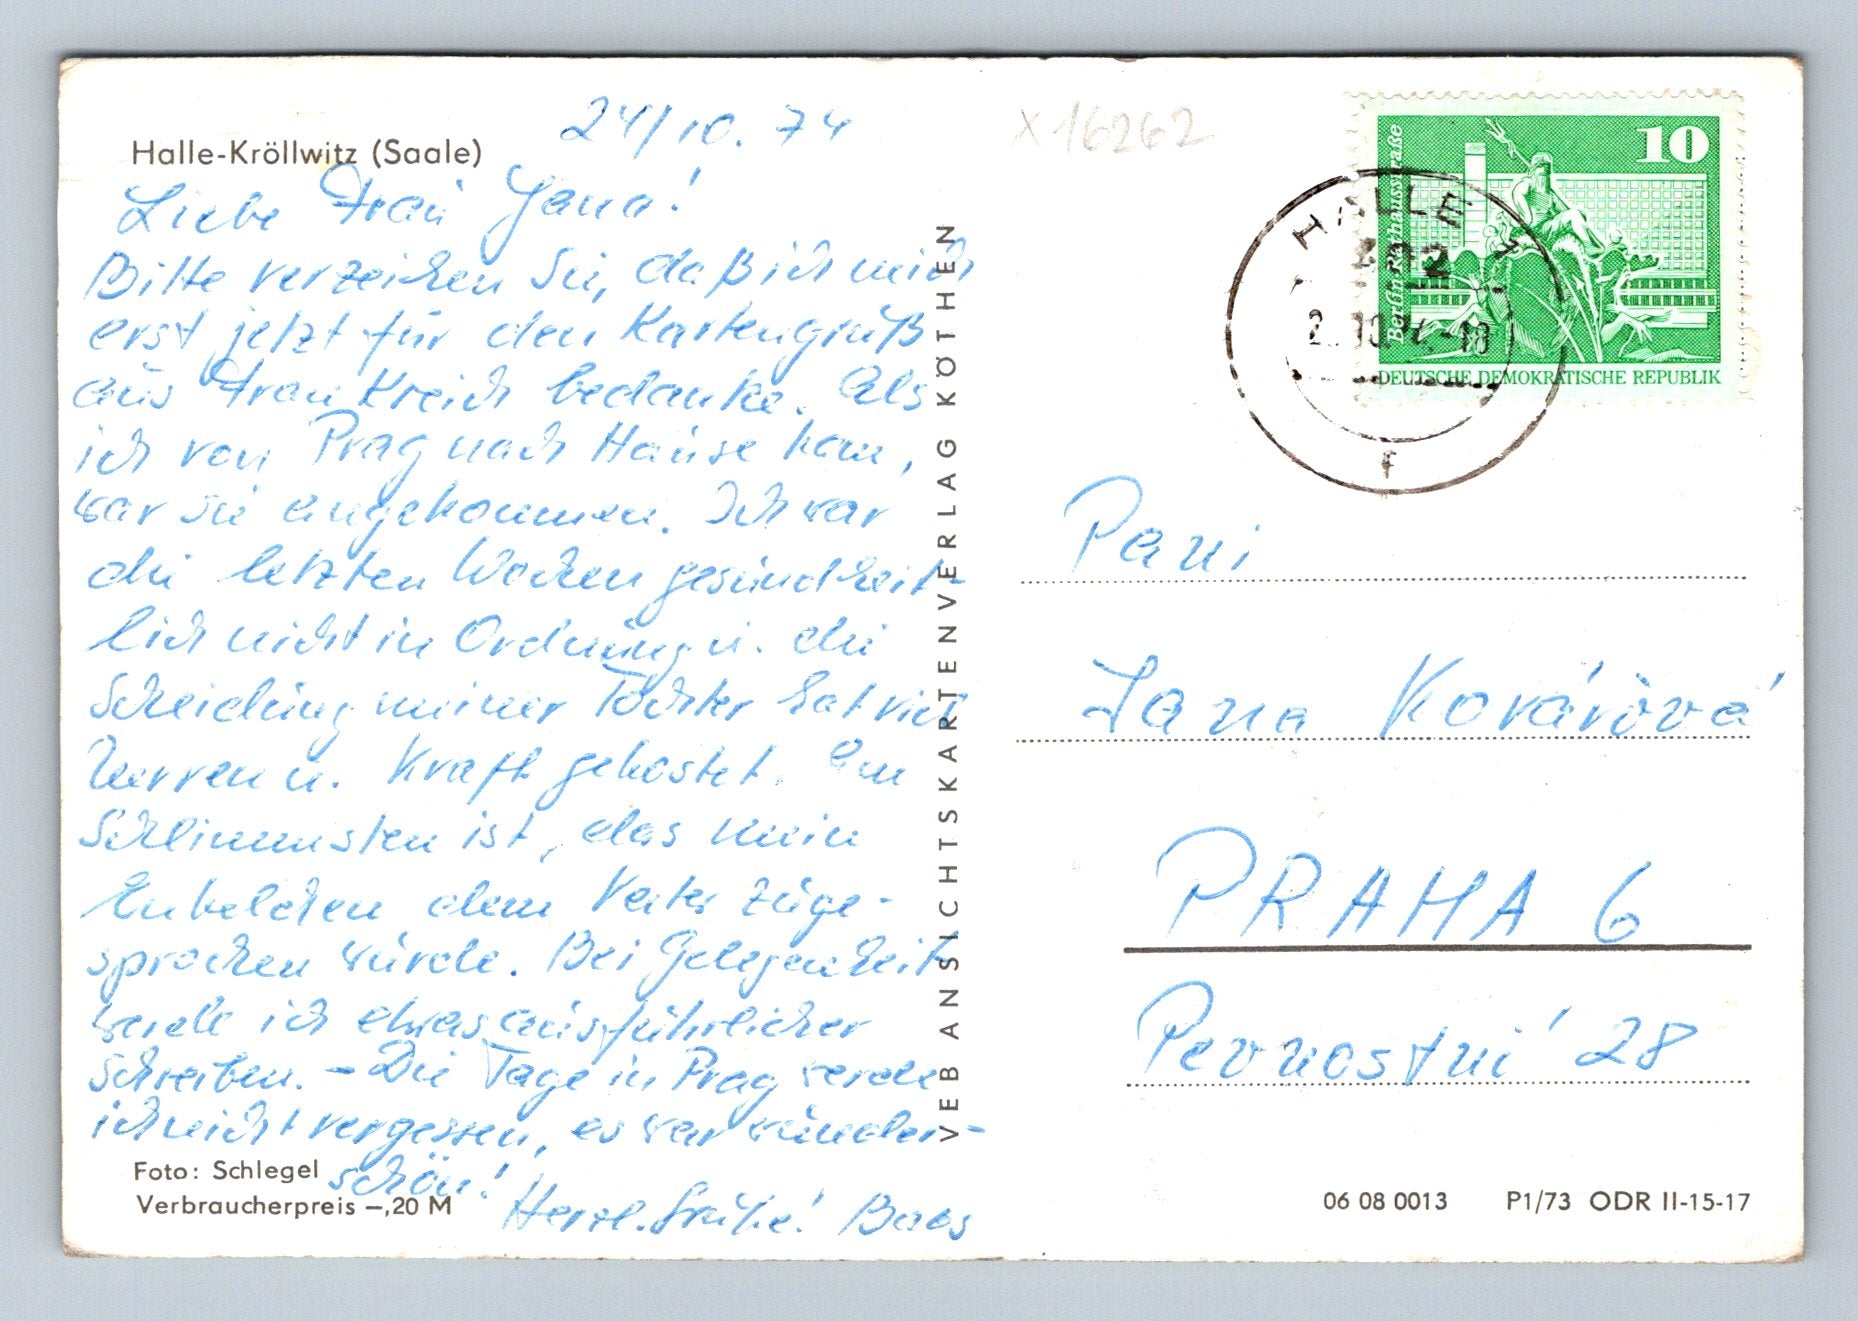 Halle-Kröllwitz (Saale)
24/10. 74
Liebe Frau Jana!
Bitte verzeihen Sie, daß ich mich
erst jetzt für den Kartengruß
aus Frankreich bedanke. Als
ich von Prag nach Hause kam,
war sie angekommen. Ich war
die letzten Wochen gesundheit-
lich nicht in Ordnung u. die
Scheidung meiner Tochter hat viel
Nerven u. Kraft gekostet. Am
Schlimmsten ist, das mein
Enkelchen dem Vater zuge-
sprochen wurde. Bei Gelegenheit
werde ich etwas ausführlicher
schreiben. - Die Tage in Prag werde
ich nicht vergessen, es war wunder-
schön!
Herzl. Grüße!
Foto: Schlegel
Verbraucherpreis -,20 M
VEB ANSICHTSKARTENVERLAG KÖTHEN
X 16262
10
Berlin, Rathausstraße
DEUTSCHE DEMOKRATISCHE REPUBLIK
HALLE
f
Pani
Jana Kovářová
PRAHA 6
Pevnostní 28
06 08 0013 P1/73 ODR II-15-17